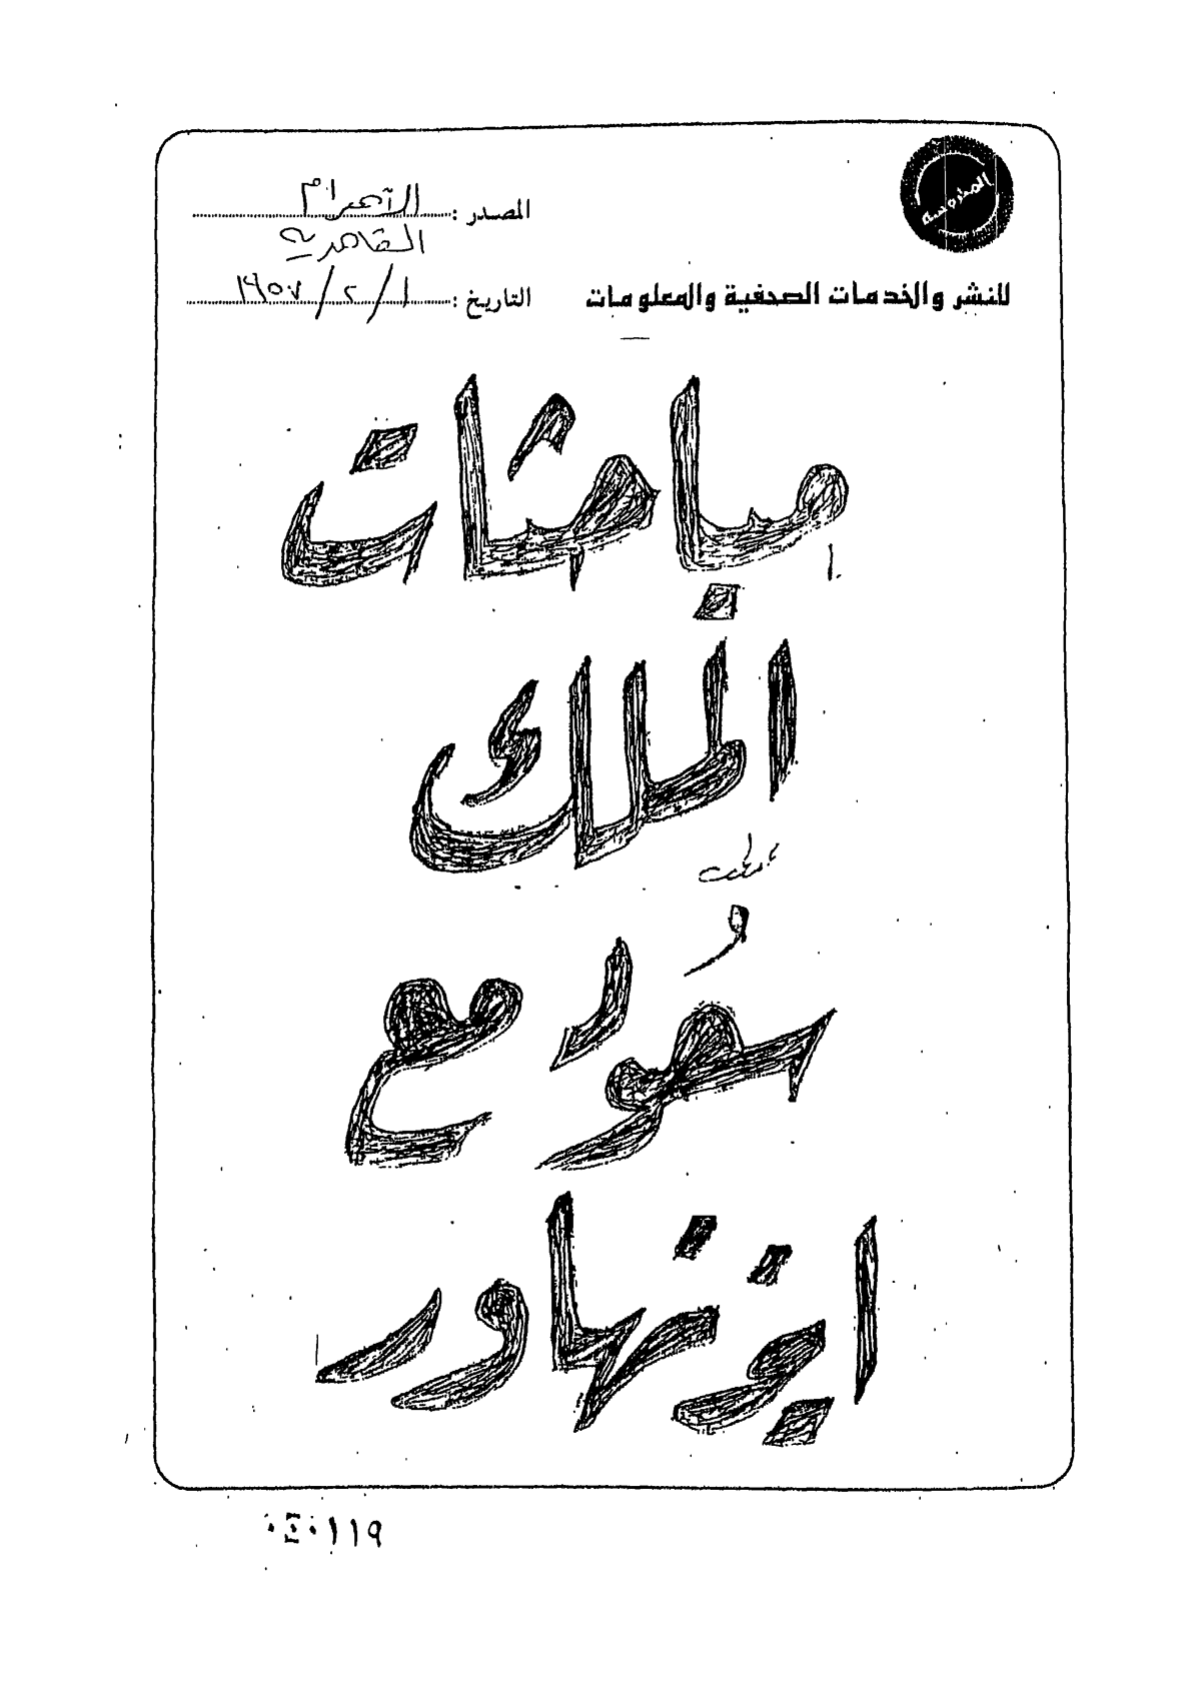 المحروسة
المصدر : الأهرام
القاهرية
للنشر والخدمات الصحفية والمعلومات
التاريخ : ١ / ٢ / ١٩٥٧
مباحثات
الملك
سعود مع
ايزنهاور